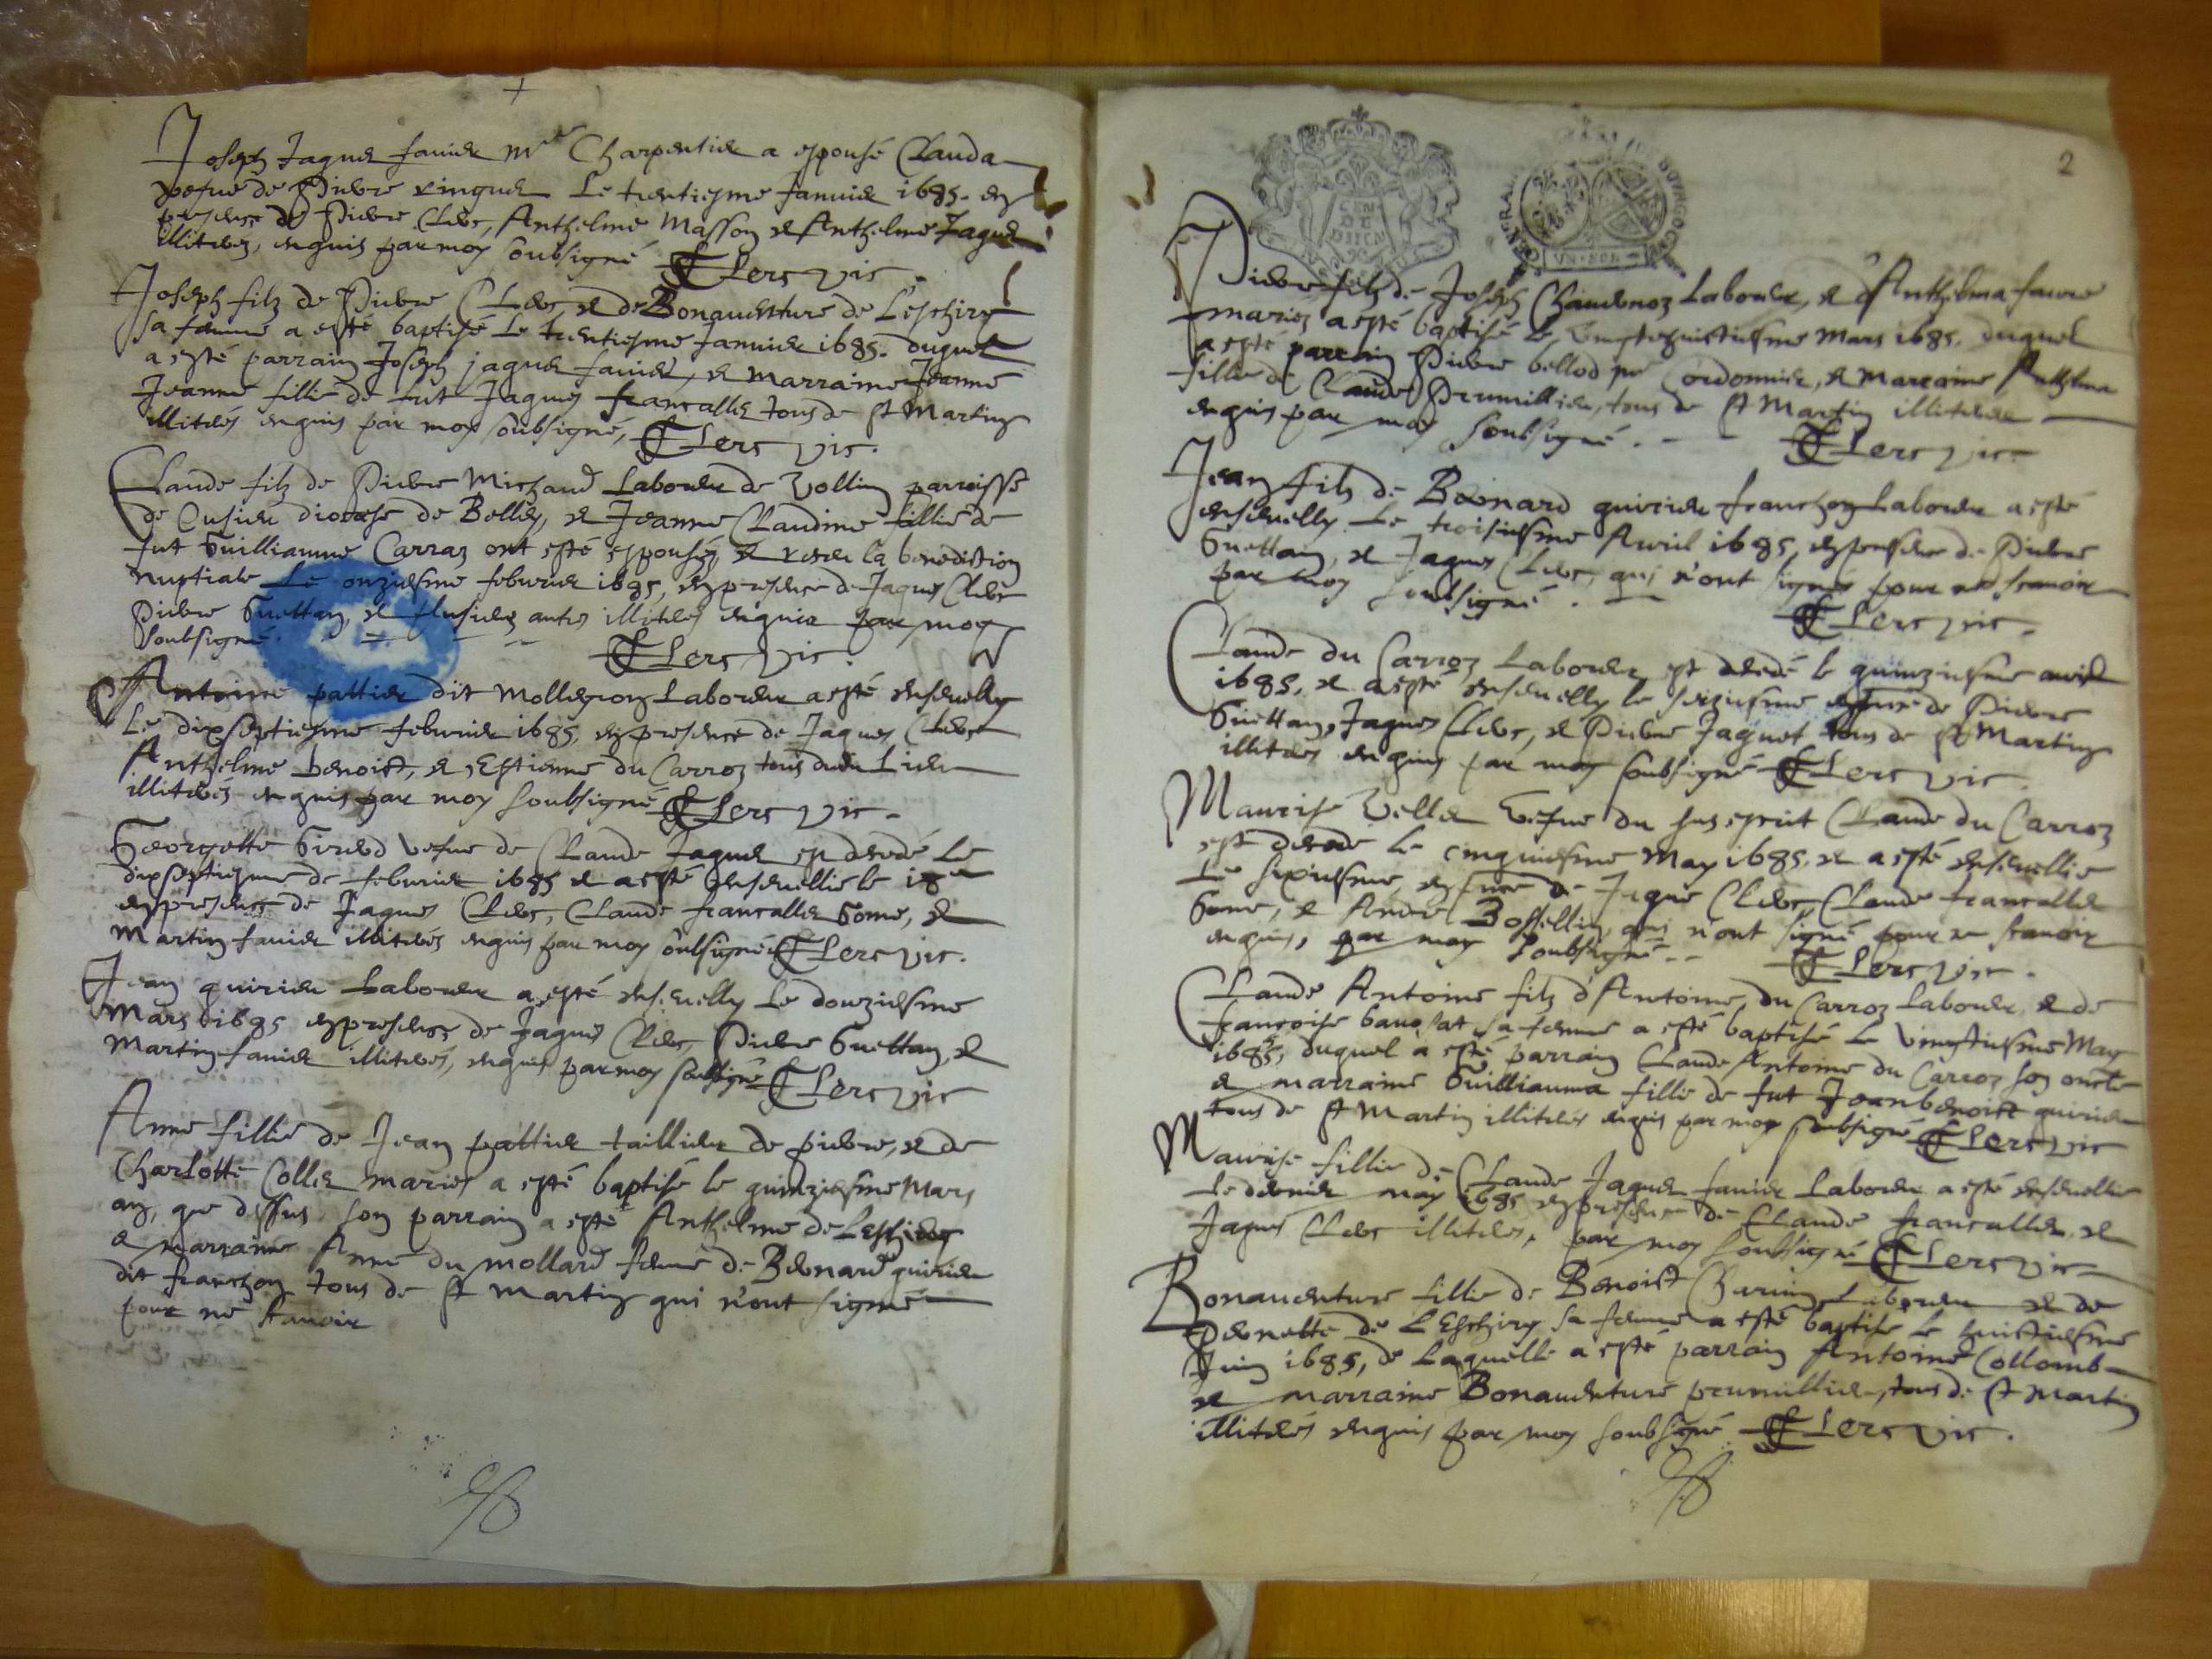 Joseph Jaquer favier Mre Charpentier a espousé Clauda
vefue de Pierre ringuer le trentiesme Januier 1685. en
presence de Pierre Clerc, Anthelme Masson et Anthelme Jaquer
illiterés, enquis par moy soubsigné Clerc vic.
Joseph filz de Pierre Clerc, et de Bonauenture de Leschiry
sa femme a esté baptisé le trentiesme Januier 1685. duquel
a esté parrain Joseph jaquer favier, et marraine Jeanne
Jeanne fillie de fut Jaques francallet tous de St Martin
illiterés enquis par moy soubsigné, Clerc vic.
Claude filz de Pierre Michaud Laboureur de Vollin parroisse
de Cusieu diocese de Belley, et Jeanne Claudine fillie de
fut Guilliaume Carraz ont esté espousés, et receu la benediction
nuptiale le onziesme feburier 1685, en presence de Jaques Clerc
Pierre Guettan, et plusieurs autres illiterés enquis par moy
soubsigné. Clerc vic.
Antoine pattier dit Molleron Laboureur a esté enseuelly
Le dixseptiesme feburier 1685, en presence de Jaques Clerc
Anthelme benoist, et Estienne du Carroz tous dudit Lieu
illiterés enquis par moy soubsigné Clerc vic.
Georgette Girod vefue de Claude Jaquer est decedé Le
dixseptiesme de feburier 1685 et a esté enseuellie le 18me
en presence de Jaques Clerc, Claude francallet Gome, et
Martin favier illiterés enquis par moy soubsigné Clerc vic.
Jean quirier Laboureur a esté enseuelly Le douziesme
Mars 1685 en presence de Jaques Clerc, Pierre Guettan, et
Martin favier illiterés, enquis par moy soubsigné Clerc vic
Anne fillie de Jean pattier taillieur de pierre, et de
Charlotte Collet mariés a esté baptisé le quinziesme Mars
an, que dessus son parrain a esté Anthelme de Leschiry
et marraine Anne du mollard femme de Bernard quirier
dit franchon tous de St Martin qui n'ont signé
pour ne scauoir
2
GEN
DE
Pierre filz de Joseph Chaudenoz Laboureur, et d'Anthelma faure
mariez a esté baptisé le vingthuictiesme Mars 1685. duquel
a esté parrain Pierre bellod me Cordonnier, et marraine Anthelma
fillie de Claude Prumillieu, tous de St Martin illiterés
enquis par moy soubsigné. Clerc vic.
Jean filz de Bernard quirier franchon Laboureur a esté
enseuelly Le troisiesme Auril 1685, en presence de Pierre
Guettan, et Jaques Clerc, qui n'ont signés pour ne scauoir
par moy soubsigné. Clerc vic.
Claude du Carroz Laboureur est decedé le quinziesme auril
1685, et a esté enseuelly le seiziesme en presence de Pierre
Guettan, Jaques Clerc, et Pierre Jaquet tous de St Martin
illiterés enquis par moy soubsigné Clerc vic.
Maurise Veller Vefue du susescrit Claude du Carroz
est decedé le cinquiesme May 1685. et a esté enseuellie
Le sixiesme, en presence de Jaques Clerc, Claude francallet
Gome, et André Bossellin, qui n'ont signé pour ne scauoir
enquis, par moy soubsigné. Clerc vic.
Claude Antoine filz d'Antoine du Carroz Laboureur et de
francoise bauosat sa femme a esté baptisé le Vingtiesme May
1685, duquel a esté parrain Claude Antoine du Carroz son oncle
et marraine Guilliauma fillie de fut Jean benoist quirier
tous de St Martin illiterés enquis par moy soubsigné Clerc vic
Maurise fillie de Claude Jaquer favier Laboureur a esté enseuellie
Le dernier may 1685 en presence de Claude francallet, et
Jaques Clerc illiterés, par moy soubsigné Clerc vic
Bonauenture fillie de Benoist Charin Laboureur et de
Pernette de Leschiry sa femme a esté baptisé le huictiesme
Juin 1685, de Laquelle a esté parrain Antoine Collomb
et marraine Bonauenture prumillieu, tous de St Martin
illiterés enquis par moy soubsigné Clerc vic.